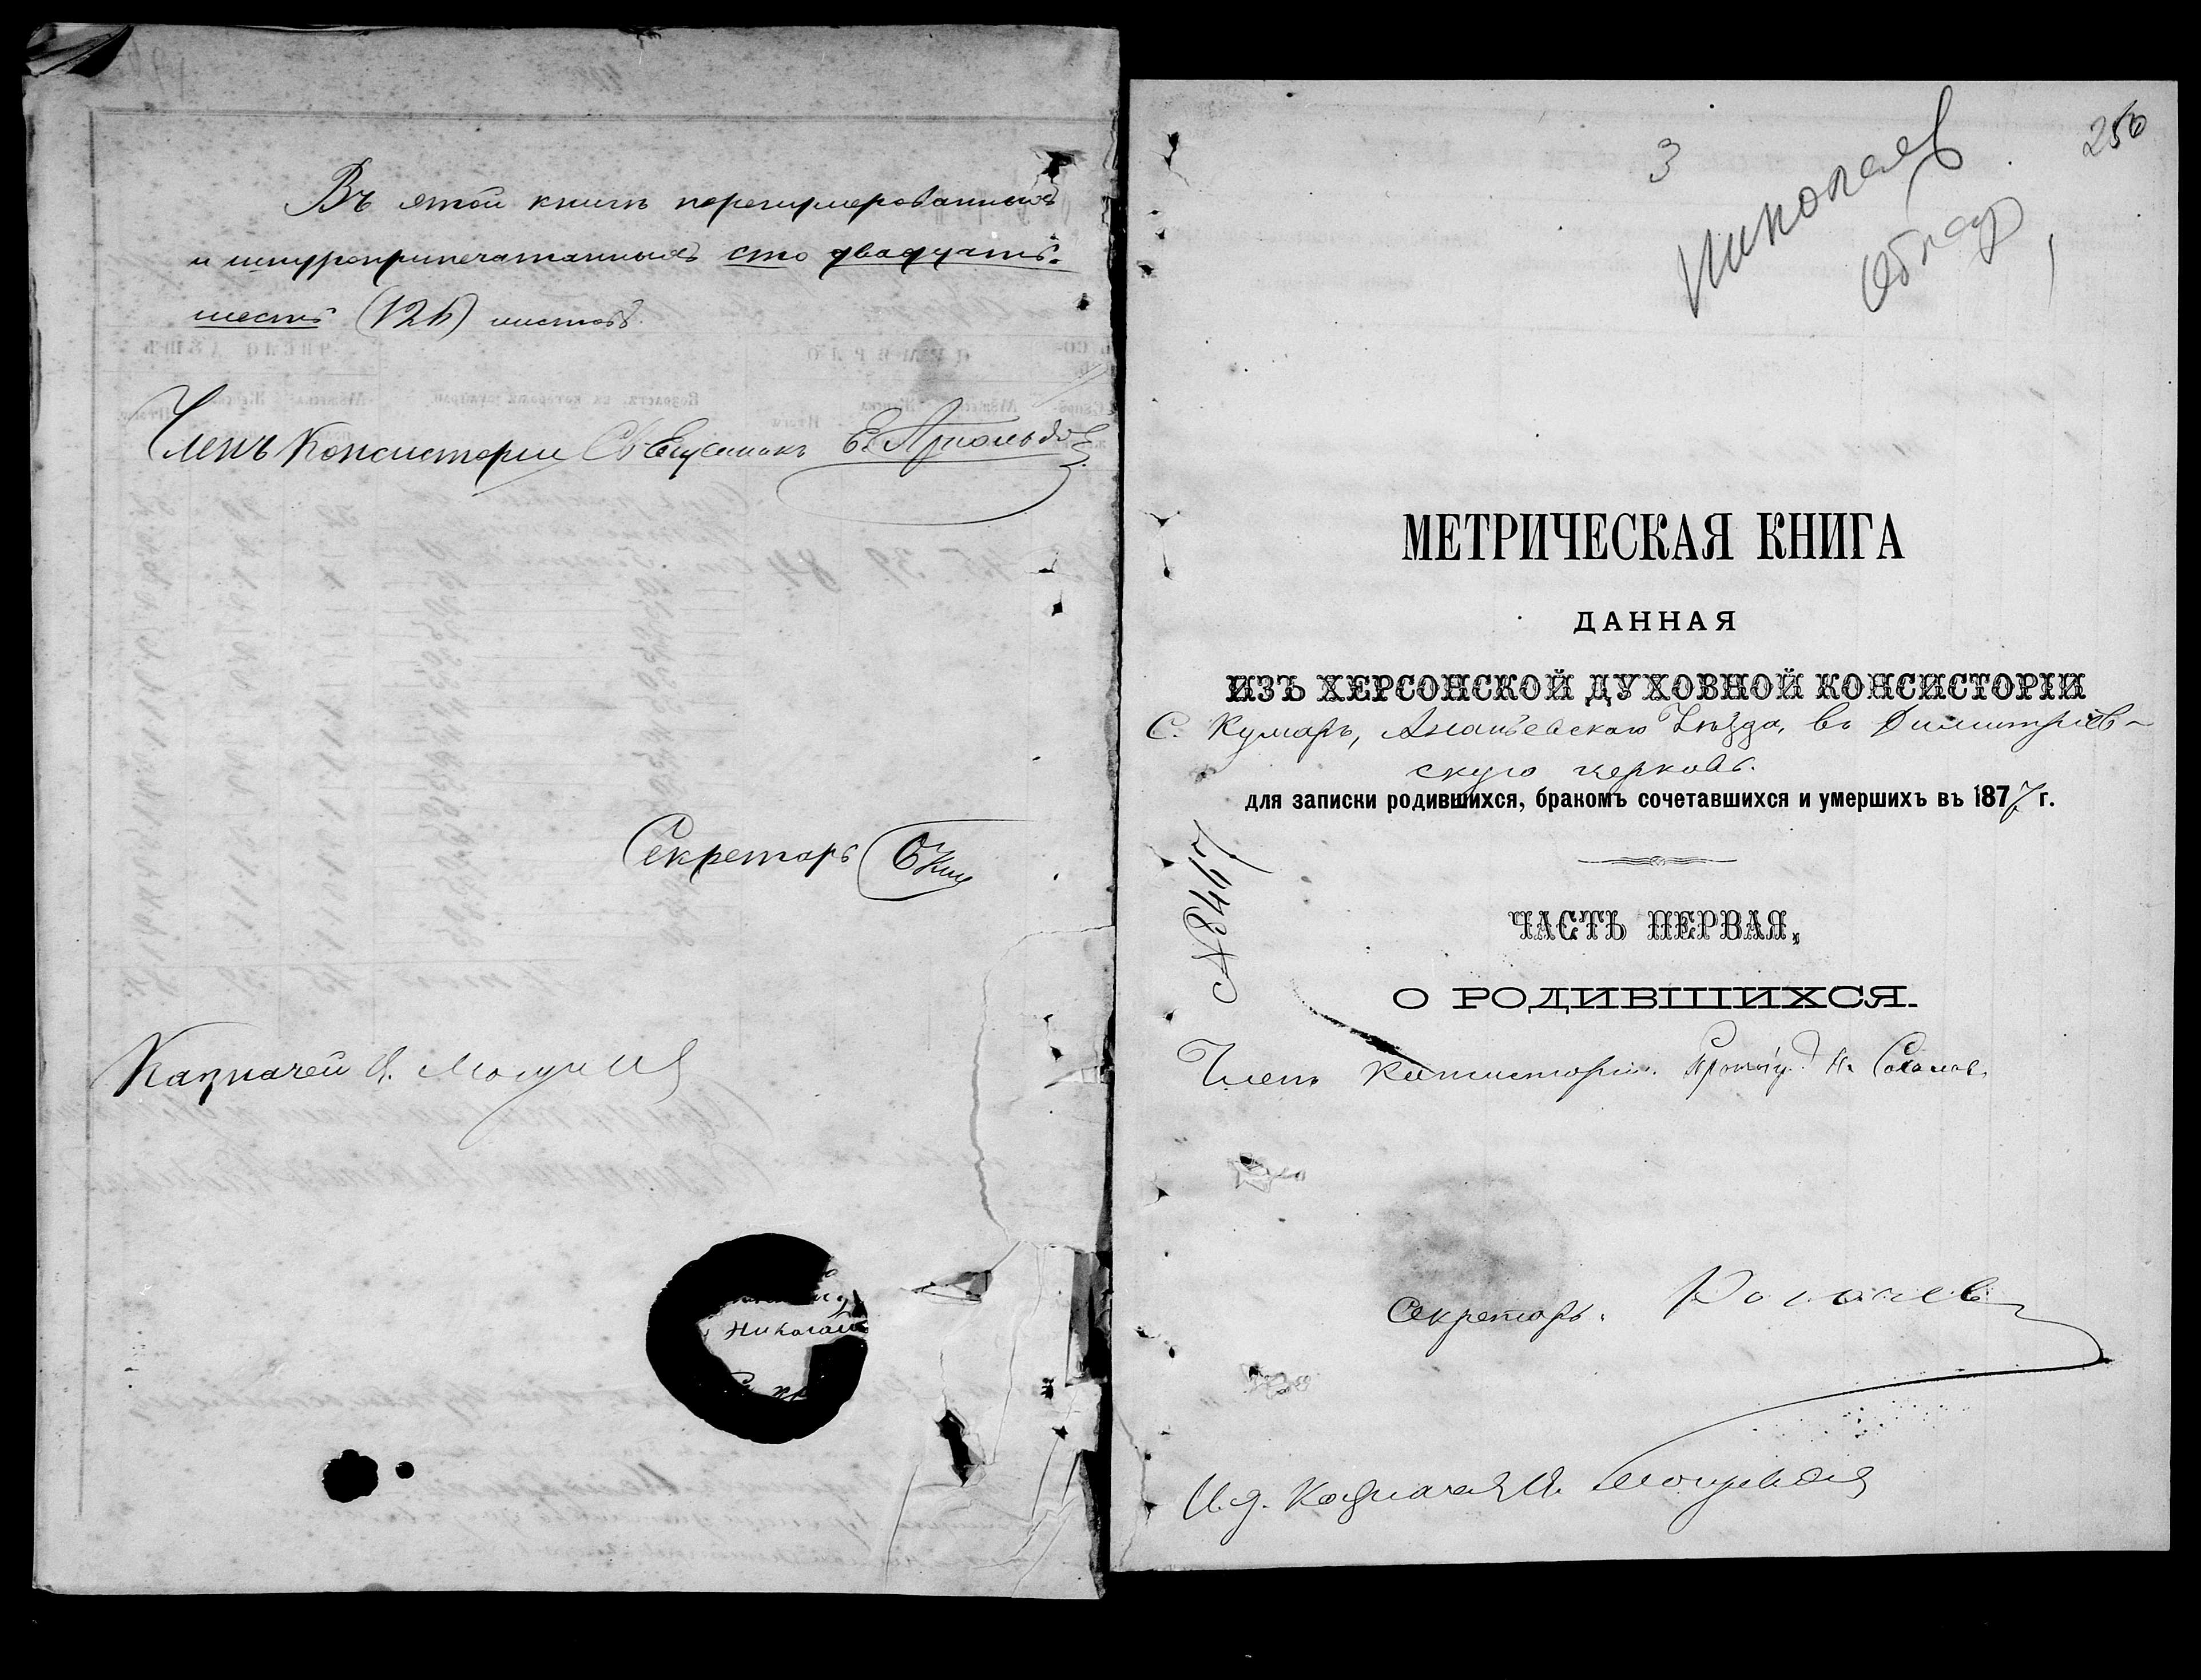 Въ этой книгѣ перенумерованныхъ
и шнуроприпечатанныхъ сто двадцать
шесть (126) листовъ.
Членъ Консисторіи Священникъ Е. Арнольдовъ
Секретарь
Казначей
Николая
3
250
Николаев
Облгос
МЕТРИЧЕСКАЯ КНИГА
ДАННАЯ
ИЗЪ ХЕРСОНСКОЙ ДУХОВНОЙ КОНСИСТОРІИ
С. Кумары, Ананьевскаго Уѣзда, въ Димитріев-
скую церковь.
для записки родившихся, бракомъ сочетавшихся и умершихъ въ 1877 г.
№ 3467
ЧАСТЬ ПЕРВАЯ,
О РОДИВШИХСЯ.
Членъ Консисторіи
Секретарь.
И. д. Казначея